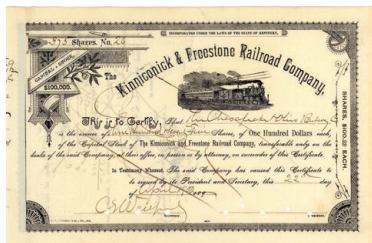 INCORPORATED UNDER THE LAWS OF THE STATE OF KENTUCKY.
393 Shares. No. 26
CAPITAL STOCK
$100,000.
The Kinniconick & Freestone Railroad Company,
SHARES, $100.00 EACH.
This is to Certify, That
is the owner of Shares, of One Hundred Dollars each,
of the Capital Stock of The Kinniconick and Freestone Railroad Company, transferable only on the
books of the said Company, at their office, in person or by attorney, on surrender of this Certificate
In Testimony Whereof, The said Company has caused this Certificate to
be signed by its President and Secretary, this 22nd day
of